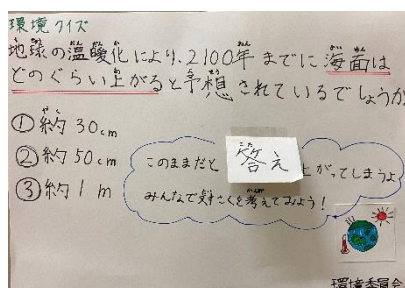 環境クイズ
地球の温暖化により、2100年までに海面は
どのぐらい上がると予想されているでしょうか
①約30cm
②約50cm
③約1m
このままだと 答え 上がってしまうよ
みんなで対さくを考えてみよう！
環境委員会